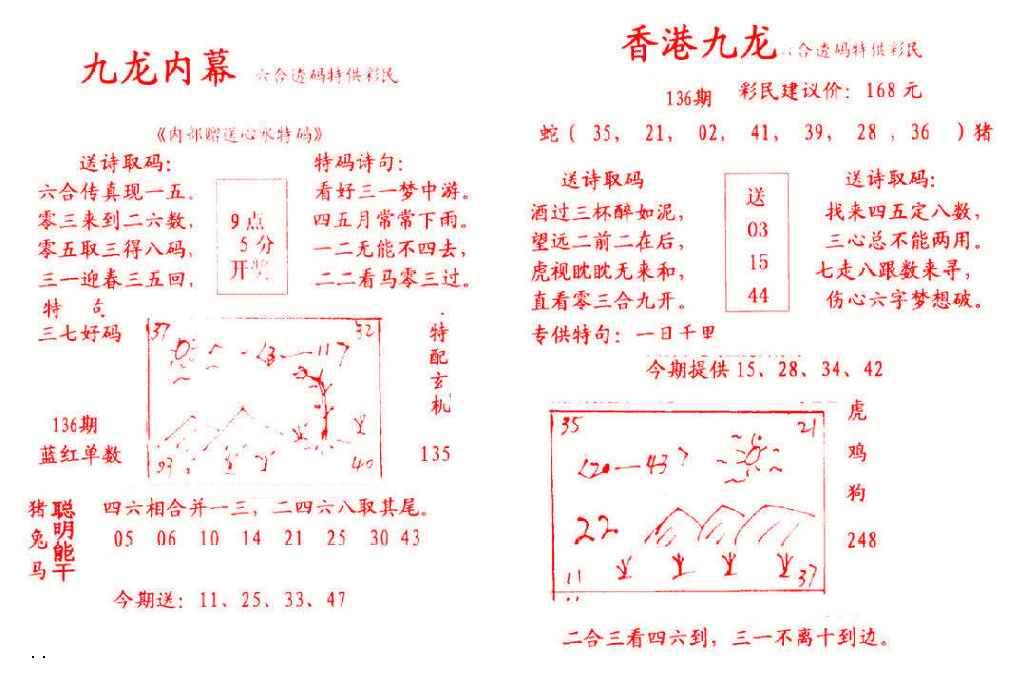 九龙内幕 六合透码特供彩民
《内部赠送心水特码》
送诗取码:
六合传真现一五。
零三来到二六数,
零五取三得八码,
三一迎春三五回,
9点
5分
开奖
特码诗句:
看好三一梦中游。
四五月常常下雨。
一二无能不四去,
二二看马零三过。
特 句
三七好码
136期
蓝红单数
37 32
13—11
40
特配玄机
135
猪兔马
聪明能干
四六相合并一三,二四六八取其尾。
05 06 10 14 21 25 30 43
今期送: 11、25、33、47
香港九龙 六合透码特供彩民
136期 彩民建议价: 168元
蛇( 35, 21, 02, 41, 39, 28 , 36 )猪
送诗取码
酒过三杯醉如泥,
望远二前二在后,
虎视眈眈无来和,
直看零三合九开。
送
03
15
44
送诗取码:
找来四五定八数,
三心总不能两用。
七走八跟数来寻,
伤心六字梦想破。
专供特句: 一日千里
今期提供 15、28、34、42
35 21
20—43
22
11 37
虎
鸡
狗
248
二合三看四六到,三一不离十到边。